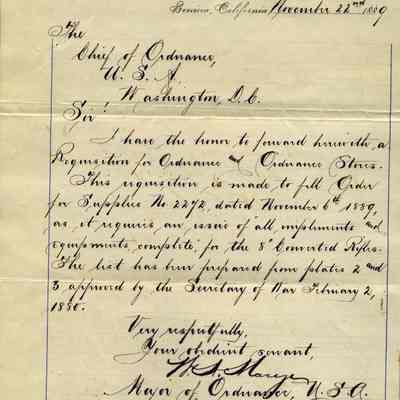 Benicia, California November 22nd 1889
The
Chief of Ordnance,
U. S. A.
Washington, D. C.
Sir:
I have the honor to forward herewith, a
Requisition for Ordnance and Ordnance Stores.
This requisition is made to fill Order
for Supplies No 2272, dated November 6th 1889,
as it requires an issue of all impliments and
equipments complete for the 8" Converted Rifles.
The list has been prepared from plates 2 and
3 approved by the Secretary of War February 2,
1880.
Very respectfully,
Your obedient servant,
Major of Ordnance, U.S.A.